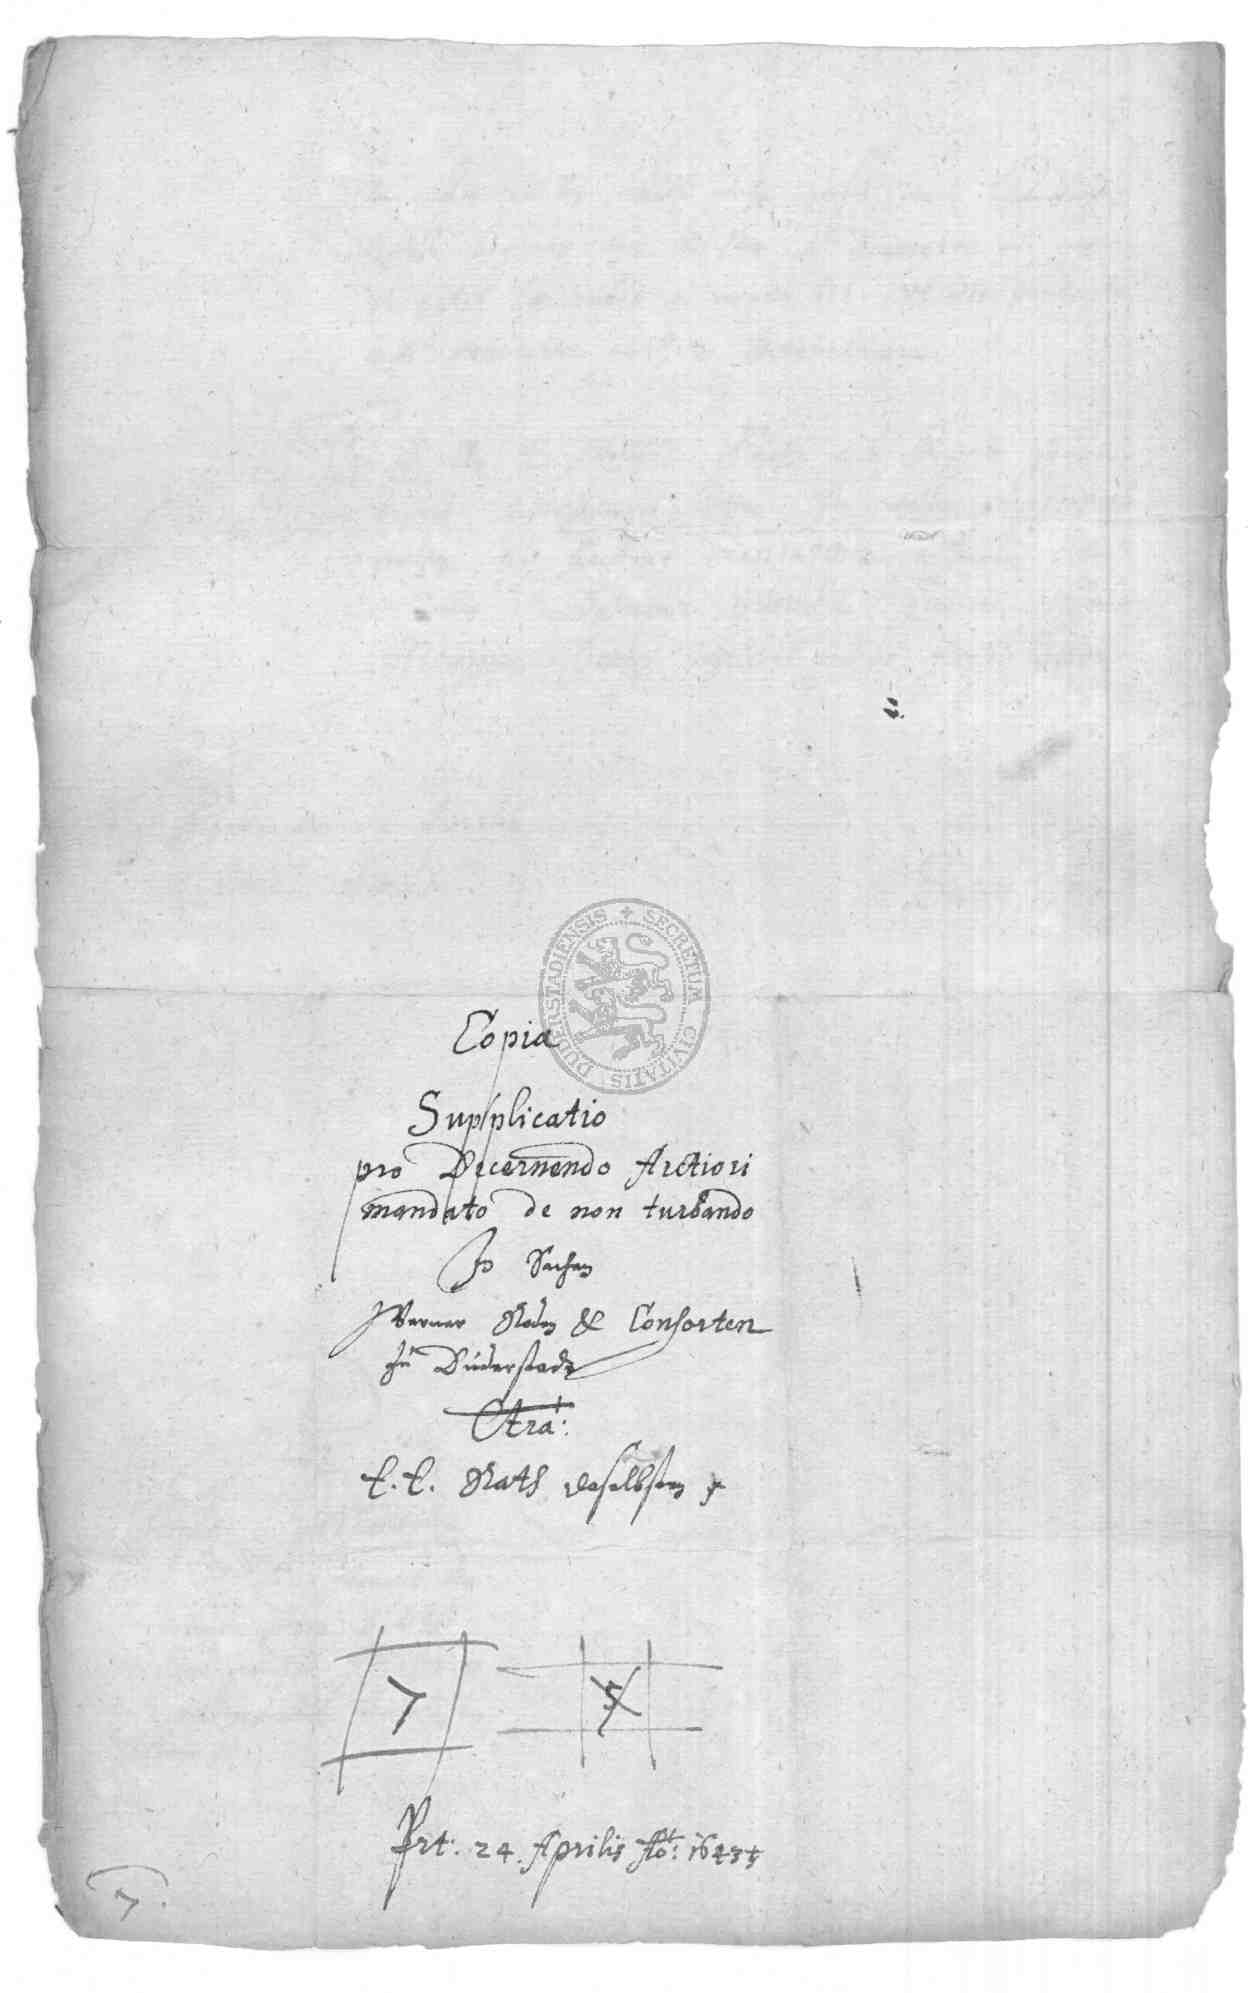 SECRETUM CIVITATIS DUDERSTADIENSIS
Copia
Supplicatio
pro Decernendo Arctiori
mandato de non turbando
In Sachen
Werner Roden & Consorten
zu Duderstadt
Ctra:
E. E. Rath daselbsten
7
5
Prt: 24. Aprilis Ao: 1643
7.